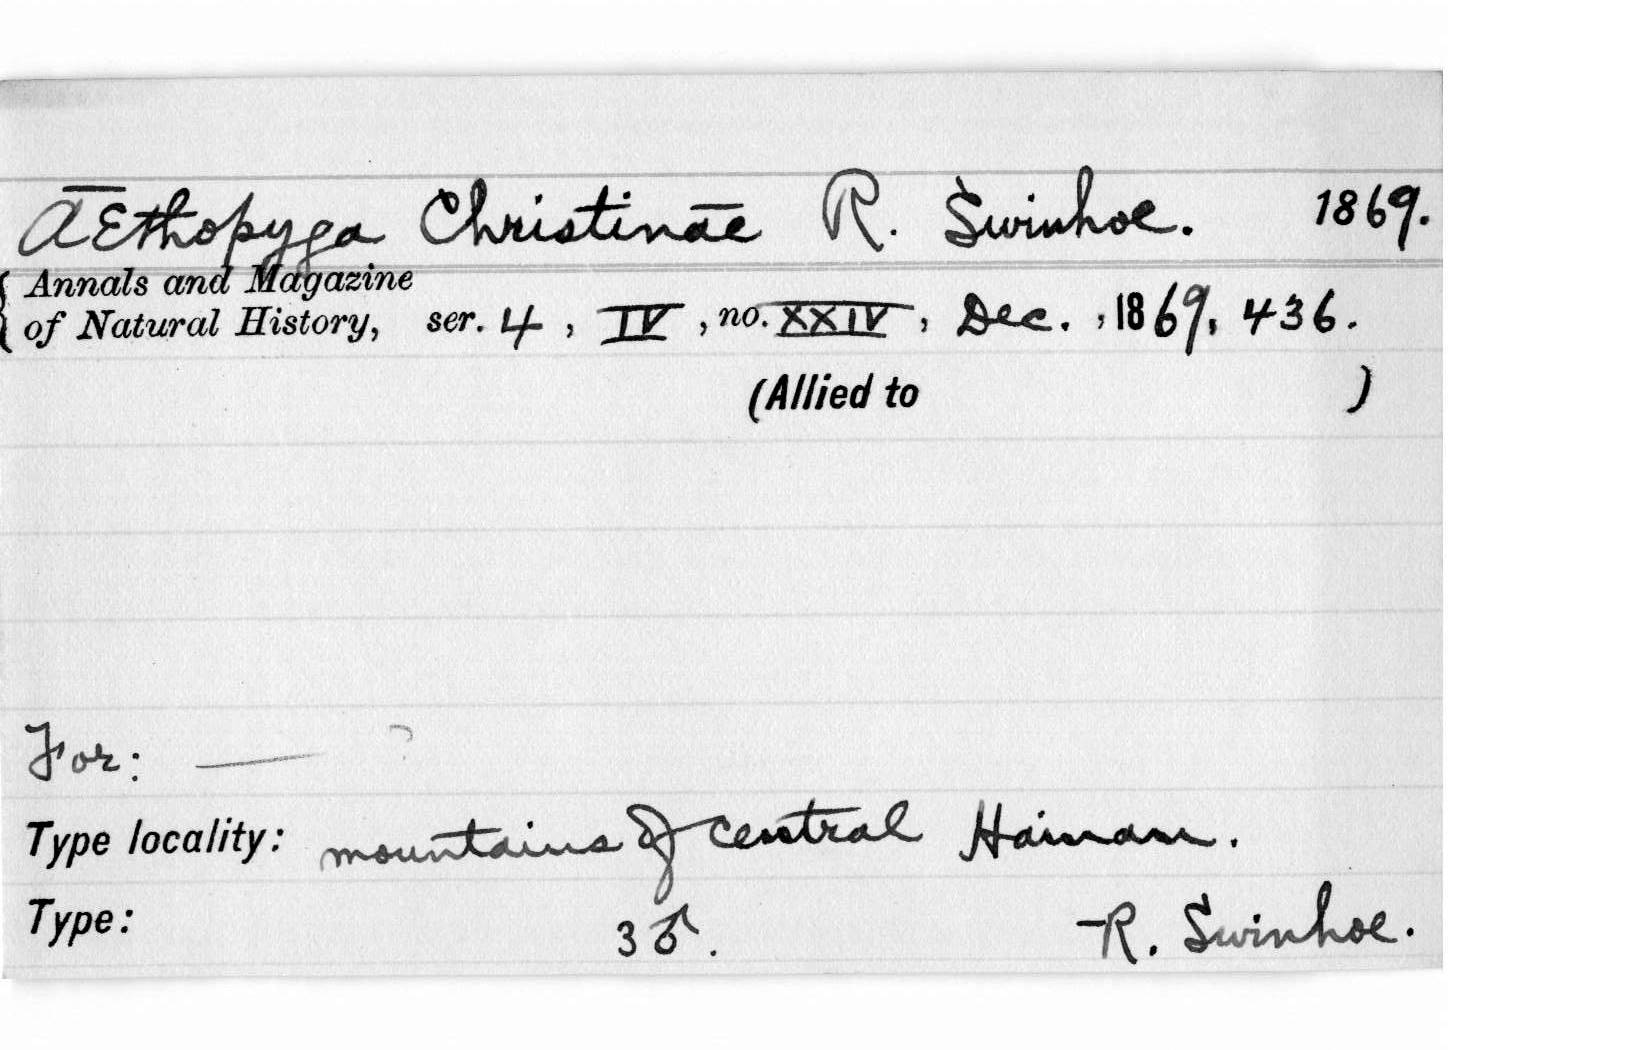 Æthopyga Christinae R. Swinhoe. 1869.
{ Annals and Magazine
of Natural History, ser. 4, IV, no. XXIV, Dec., 1869, 436.
(Allied to )
For: — ?
Type locality: mountains of central Hainan.
Type: 3♂. R. Swinhoe.